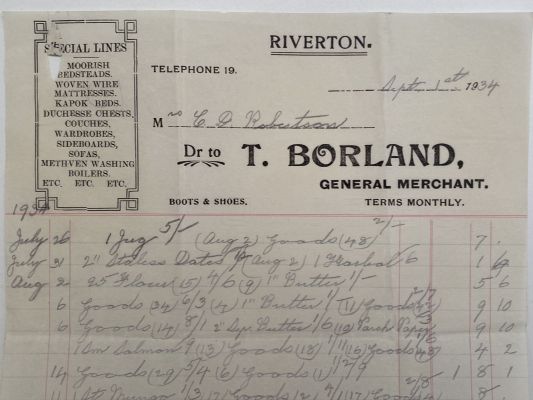 SPECIAL LINES
MOORISH
BEDSTEADS.
WOVEN WIRE
MATTRESSES.
KAPOK BEDS.
DUCHESSE CHESTS,
COUCHES,
WARDROBES,
SIDEBOARDS,
SOFAS,
METHVEN WASHING
BOILERS.
ETC. ETC. ETC.
RIVERTON.
TELEPHONE 19.
Sept 1st 1934
Mrs C. D. Robertson
Dr to T. BORLAND,
GENERAL MERCHANT.
BOOTS & SHOES. TERMS MONTHLY.
1934
July 26 1 Jug 5/- (Aug 2) Goods (48) 2/- 7 .
July 31 2" Dates (Aug 2) 1 6 1
Aug 2 25 Flour (15) 4/6 (9) 1" Butter 1/- 5 6
6 Goods (34) 6/3 (4) 1" Butter 1/ (11) Goods 2/7 9 10
6 Goods (14) 8/1 2" Butter 1/6 (10) 9 10
1 Sm Salmon 9 (13) Goods (18) 1/11 (16) Goods 4 2
14 Goods (29) 5/4 (6) Goods (1) 1 8 1
11 1/3 (17) Goods (2) (17) Goods 2/8 8 .